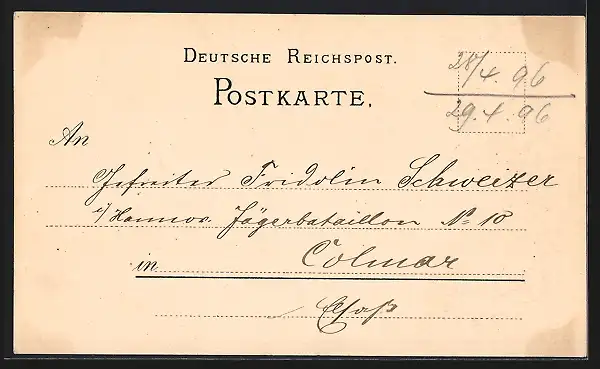 DEUTSCHE REICHSPOST.
POSTKARTE.
28/4. 96
29. 4. 96
An
Gefreiter Fridolin Schweizer
i/ Hannov. Jägerbataillon No 10
in Colmar
Elsaß